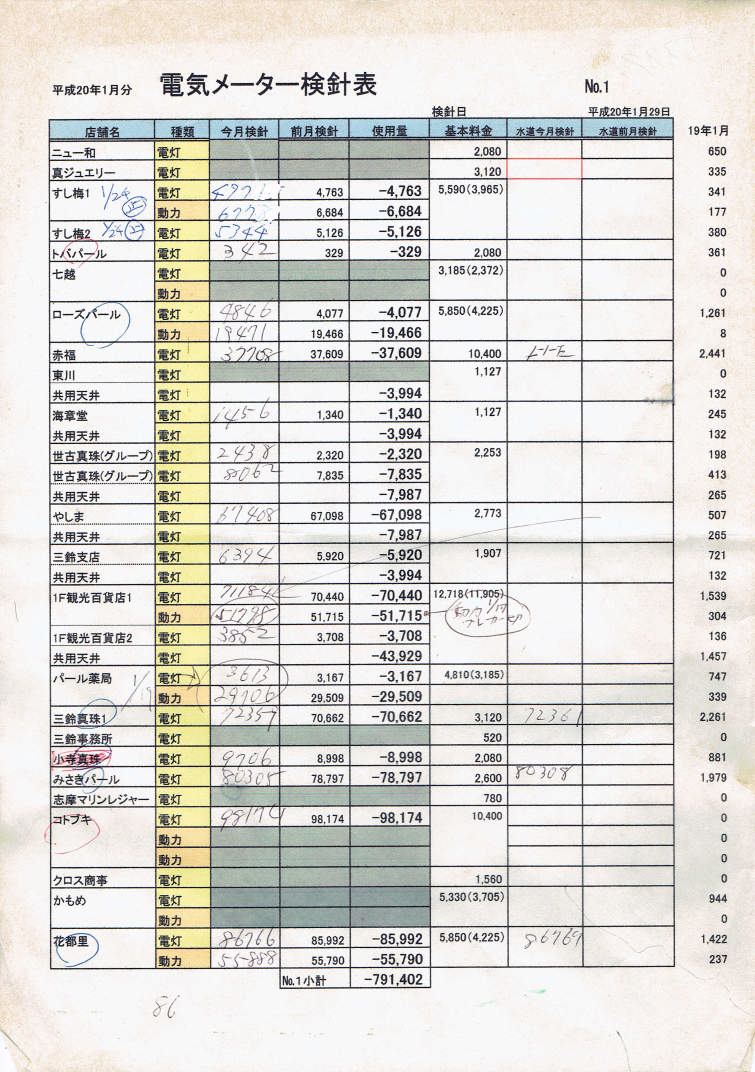 平成20年1月分 電気メーター検針表 No.1
検針日 平成20年1月29日
店舗名 種類 今月検針 前月検針 使用量 基本料金 水道今月検針 水道前月検針 19年1月
ニュー和 電灯 2,080 650
真ジュエリー 電灯 3,120 335
すし梅1 1/24 電灯 4,763 -4,763 5,590(3,965) 341
動力 6,684 -6,684 177
すし梅2 1/24 電灯 5344 5,126 -5,126 380
トバパール 電灯 342 329 -329 2,080 361
七越 電灯 3,185(2,372) 0
動力 0
ローズパール 電灯 4846 4,077 -4,077 5,850(4,225) 1,261
動力 19471 19,466 -19,466 8
赤福 電灯 37708 37,609 -37,609 10,400 2,441
東川 電灯 1,127 0
共用天井 電灯 -3,994 132
海章堂 電灯 1456 1,340 -1,340 1,127 245
共用天井 電灯 -3,994 132
世古真珠(グループ) 電灯 2438 2,320 -2,320 2,253 198
世古真珠(グループ) 電灯 8062 7,835 -7,835 413
共用天井 電灯 -7,987 265
やしま 電灯 67408 67,098 -67,098 2,773 507
共用天井 電灯 -7,987 265
三鈴支店 電灯 6394 5,920 -5,920 1,907 721
共用天井 電灯 -3,994 132
1F観光百貨店1 電灯 71184 70,440 -70,440 12,718(11,905) 1,539
動力 51798 51,715 -51,715 304
1F観光百貨店2 電灯 3852 3,708 -3,708 136
共用天井 電灯 -43,929 1,457
パール薬局 1/19 電灯 3613 3,167 -3,167 4,810(3,185) 747
動力 29706 29,509 -29,509 339
三鈴真珠1 電灯 72357 70,662 -70,662 3,120 72361 2,261
三鈴事務所 電灯 520 0
小寺真珠 電灯 9706 8,998 -8,998 2,080 881
みさきパール 電灯 80305 78,797 -78,797 2,600 80308 1,979
志摩マリンレジャー 電灯 780 0
コトブキ 電灯 98174 98,174 -98,174 10,400 0
動力 0
動力 0
クロス商事 電灯 1,560 0
かもめ 電灯 5,330(3,705) 944
動力 0
花都里 電灯 86766 85,992 -85,992 5,850(4,225) 86769 1,422
動力 55888 55,790 -55,790 237
No.1小計 -791,402
86